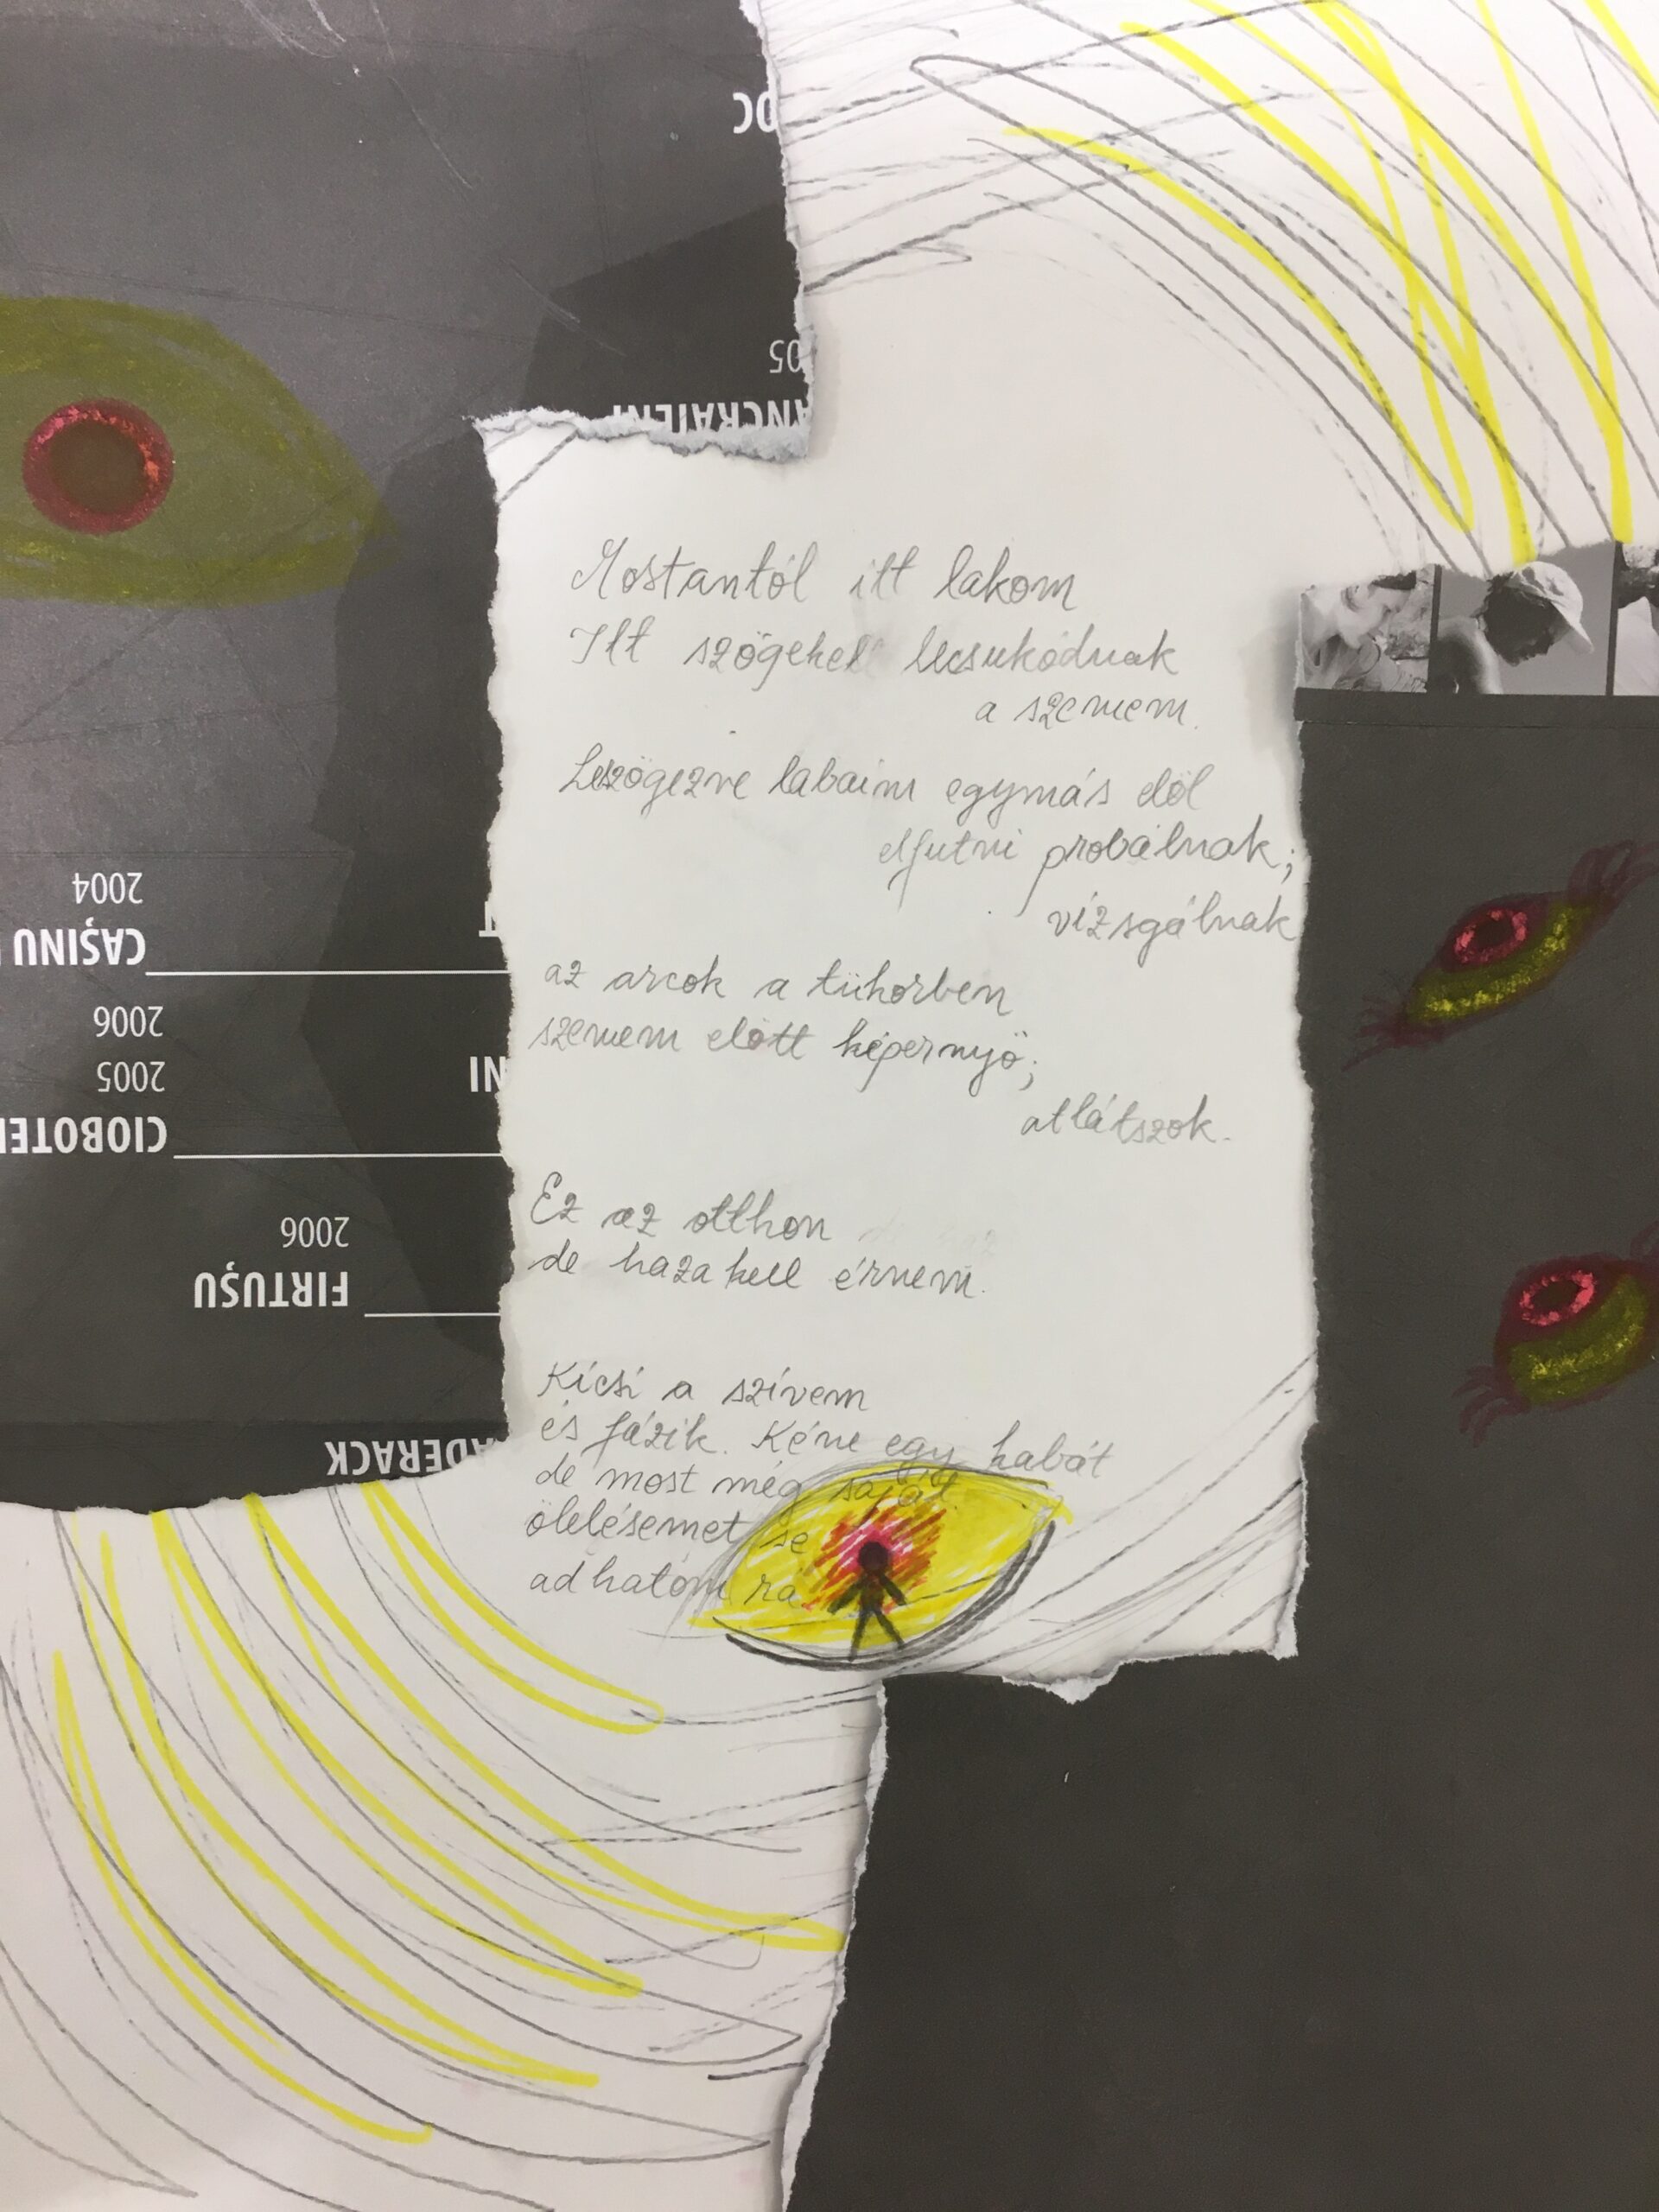 DC
05
ANCRĂIENI
Mostantól itt lakom
Itt szögekel lecsukódnak
a szemem.
Leszögezve labaim egymás elöl
elfutni probálnak;
vizsgálnak
az arcok a tükörben
szemem elött képernyö;
atlátszok.
Ez az otthon
de haza kell érnem.
Kicsi a szívem
és fázik. Kéne egy kabát
de most még saját
ölelésemet se
adhatom ra.
2004
CAŞINU
2006
2005
CIOBOTE
NI
2006
FIRTUŞU
ADERACK